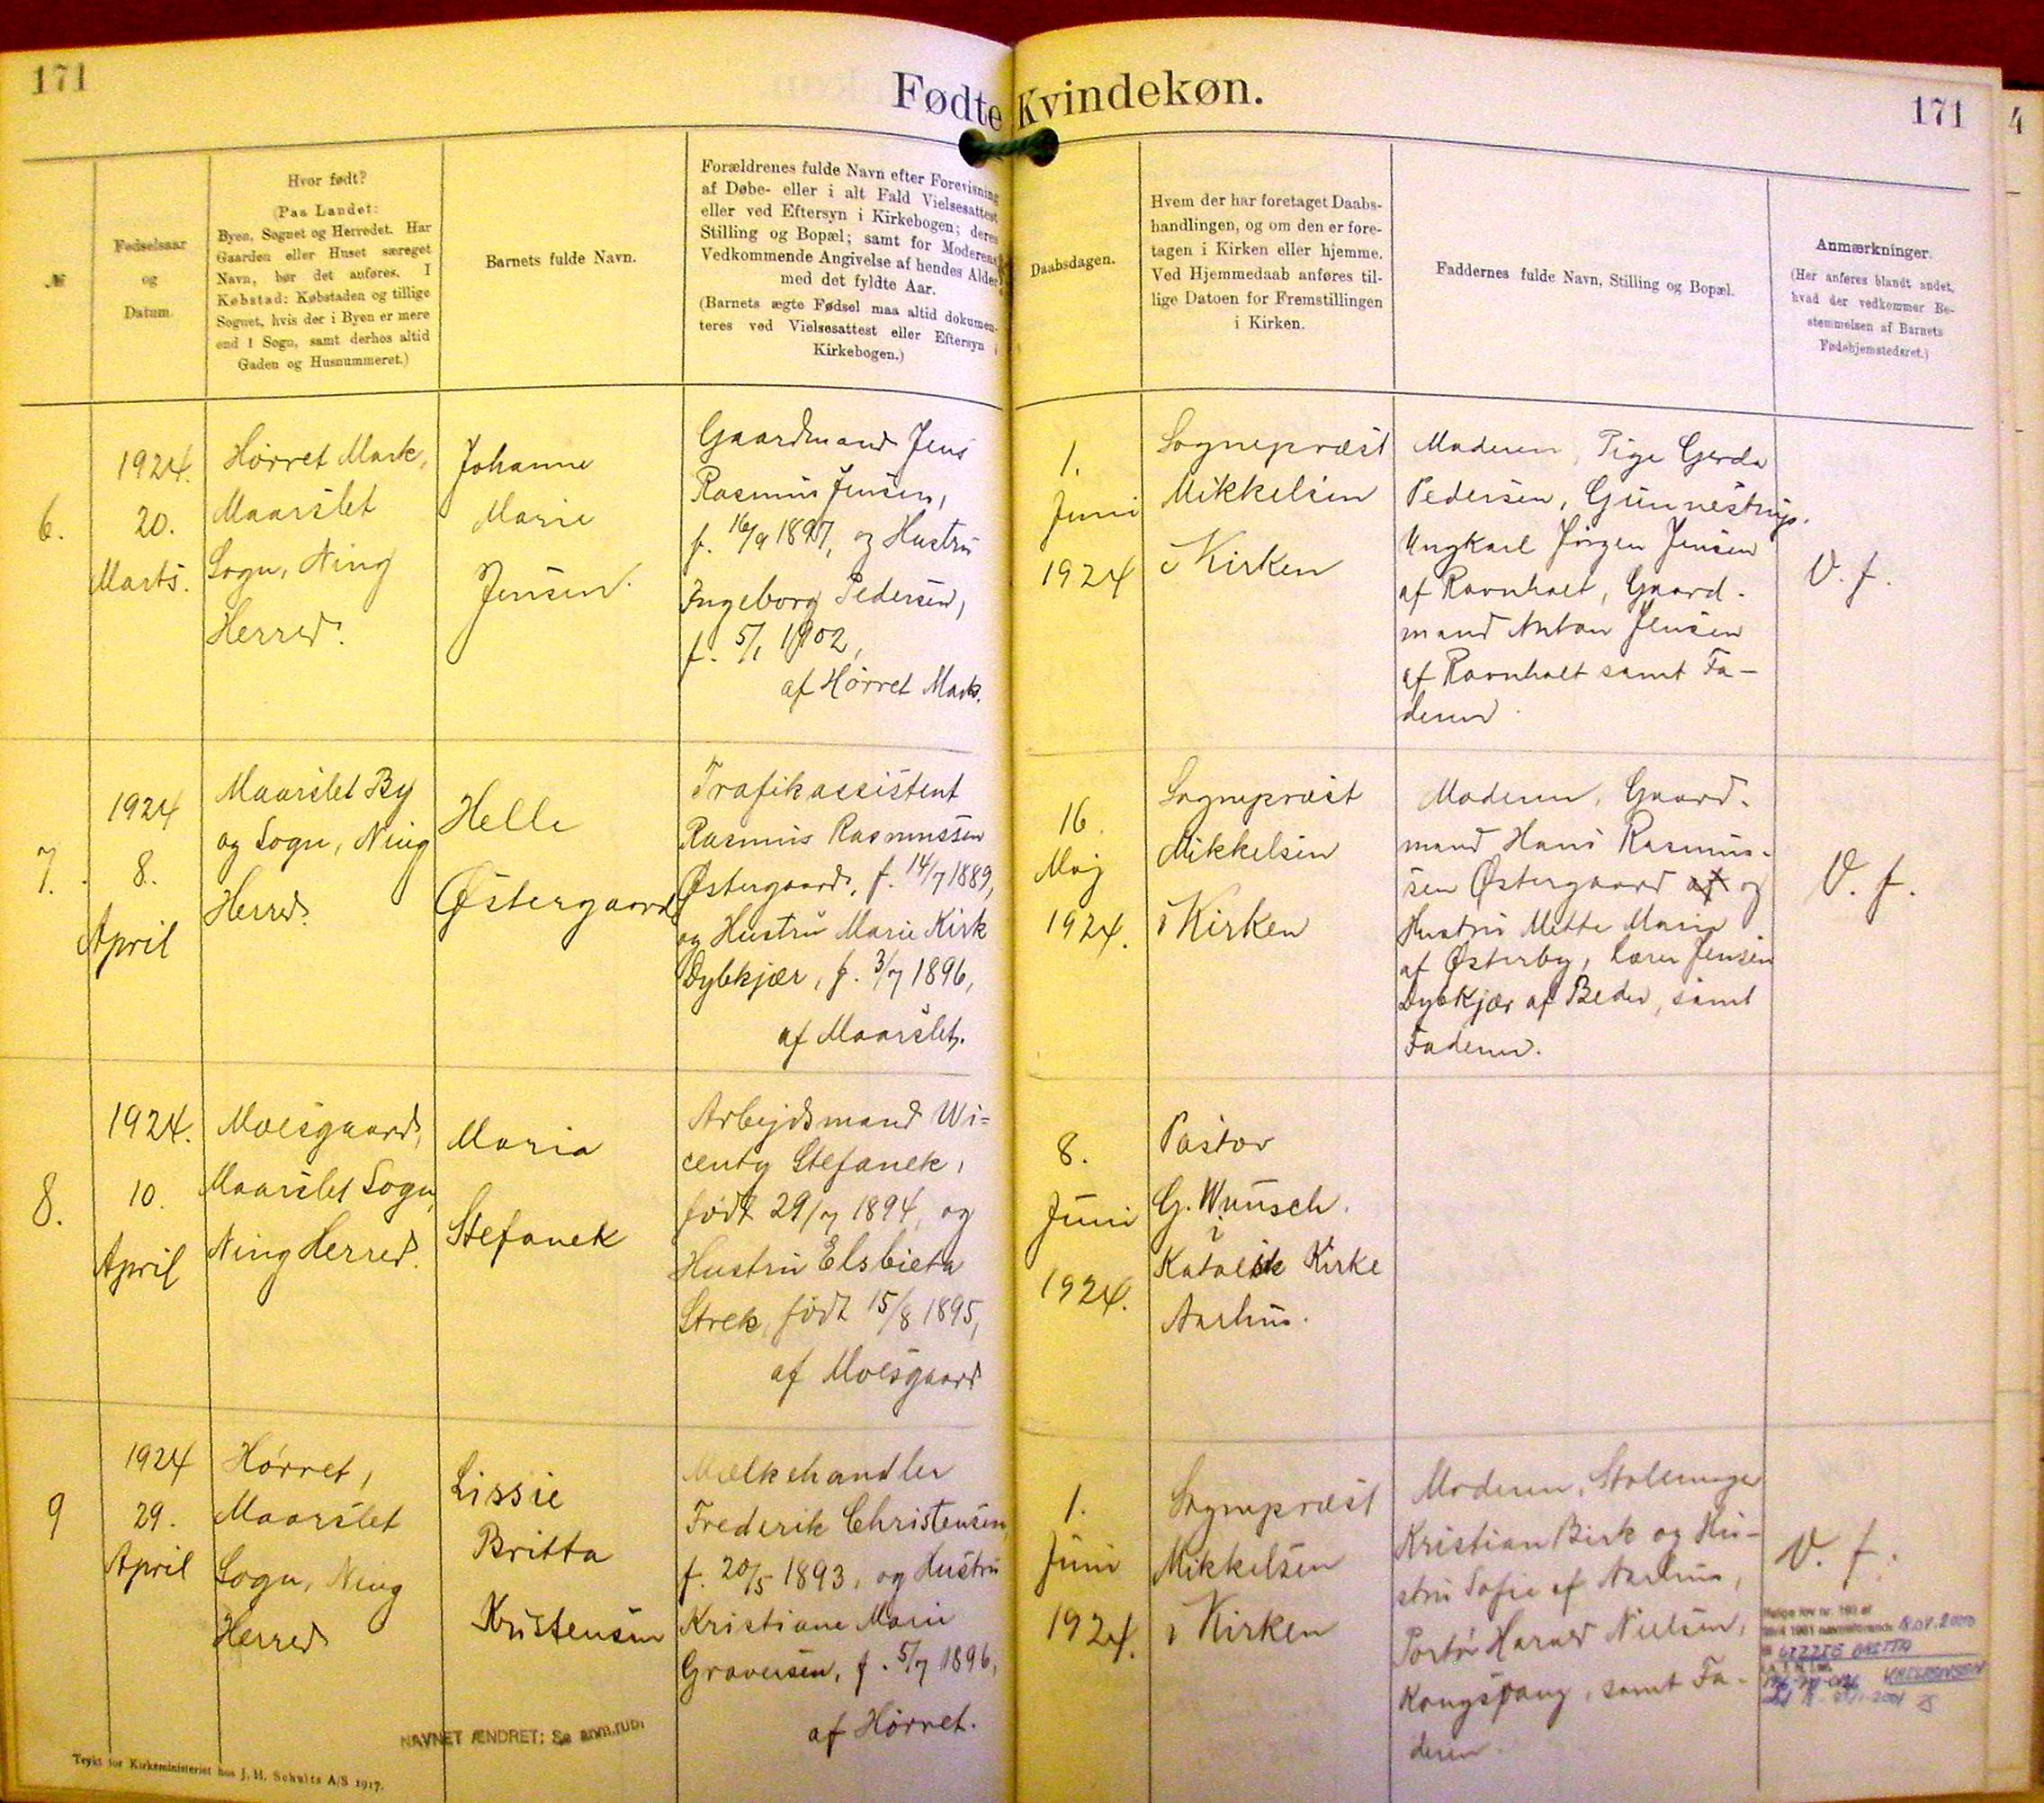 171
Fødte Kvindekøn.
171
4
№
Fødselsaar
og
Datum.
Hvor født?
(Paa Landet:
Byen, Sognet og Herredet. Har
Gaarden eller Huset særeget
Navn, bør det anføres. I
Købstad: Købstaden og tillige
Sognet, hvis der i Byen er mere
end 1 Sogn, samt derhos altid
Gaden og Husnummeret.)
Barnets fulde Navn.
Forældrenes fulde Navn efter Forevisning
af Døbe- eller i alt Fald Vielsesattest
eller ved Eftersyn i Kirkebogen; deres
Stilling og Bopæl; samt for Moderens
Vedkommende Angivelse af hendes Alder
med det fyldte Aar.
(Barnets ægte Fødsel maa altid dokumen-
teres ved Vielsesattest eller Eftersyn i
Kirkebogen.)
Daabsdagen.
Hvem der har foretaget Daabs-
handlingen, og om den er fore-
tagen i Kirken eller hjemme.
Ved Hjemmedaab anføres til-
lige Datoen for Fremstillingen
i Kirken.
Faddernes fulde Navn, Stilling og Bopæl.
Anmærkninger.
(Her anføres blandt andet,
hvad der vedkommer Be-
stemmelsen af Barnets
Fødehjemstedsret.)
6.
1924.
20.
Marts.
Hørret Mark,
Maarslet
Sogn, Ning
Herred.
Johanne
Marie
Jensen.
Gaardmand Jens
Rasmus Jensen,
f. 16/9 1897, og Hustru
Ingeborg Pedersen,
f. 5/1 1902,
af Hørret Mark.
1.
Juni
1924
Sognepræst
Mikkelsen
i Kirken
Moderen, Pige Gerda
Pedersen, Gunnestrup.
Ungkarl Jørgen Jensen
af Ravnholt, Gaard-
mand Anton Jensen
af Ravnholt samt Fa-
deren.
V. f.
7.
1924
8.
April
Maarslet By
og Sogn, Ning
Herred.
Helle
Østergaard
Trafikassistent
Rasmus Rasmussen
Østergaard, f. 14/7 1889,
og Hustru Marie Kirk
Dybkjær, f. 3/7 1896,
af Maarslet.
16.
Maj
1924.
Sognepræst
Mikkelsen
i Kirken
Moderen, Gaard-
mand Hans Rasmus-
sen Østergaard af og
Hustru Mette Marie
af Østerby, Lærer Jensen
Dybkjær af Beder, samt
Faderen.
V. f.
8.
1924.
10.
April
Moesgaard,
Maarslet Sogn,
Ning Herred.
Maria
Stefanek
Arbejdsmand Wi=
centy Stefanek,
født 29/7 1894, og
Hustru Elsbieta
Strek, født 15/8 1895,
af Moesgaard
8.
Juni
1924.
Pastor
G. Wunsch.
i
Katolsk Kirke
Aarhus.
9
1924
29.
April
Hørret,
Maarslet
Sogn, Ning
Herred
Lissie
Britta
Kristensen
Mælkehandler
Frederik Christensen,
f. 20/5 1893, og Hustru
Kristiane Marie
Graversen, f. 5/7 1896,
af Hørret.
1.
Juni
1924.
Sognepræst
Mikkelsen
i Kirken
Moderen, Stolemager
Kristian Birk og Hu-
stru Sofie af Aarhus,
Portør Harald Nielsen,
Kongsvang, samt Fa-
deren.
V. f.
Ifølge lov nr. 193 af
1981
LIZZIE BRITTA
KRISTENSEN
NAVNET ÆNDRET: Se anm.rubr.
Trykt for Kirkeministeriet hos J. H. Schultz A/S 1917.